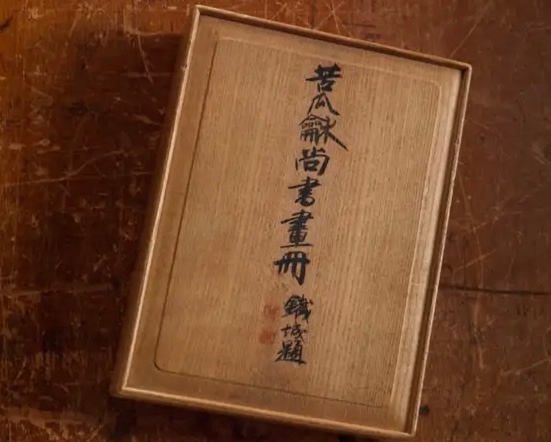 苦瓜龢尚書畫冊
鐵城題